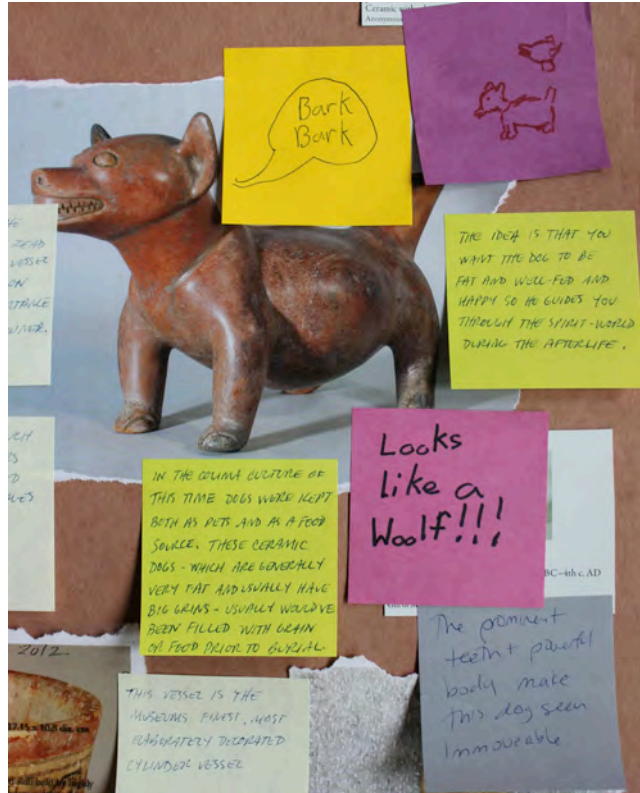 Ceramic
Anonymous
Bark
Bark
THE IDEA IS THAT YOU
WANT THE DOG TO BE
FAT AND WELL-FED AND
HAPPY SO HE GUIDES YOU
THROUGH THE SPIRIT-WORLD
DURING THE AFTERLIFE.
VESSEL
ON
Looks
like a
Woolf!!!
IN THE COLIMA CULTURE OF
THIS TIME DOGS WERE KEPT
BOTH AS PETS AND AS A FOOD
SOURCE. THESE CERAMIC
DOGS - WHICH ARE GENERALLY
VERY FAT AND USUALLY HAVE
BIG GRINS - USUALLY WOULD'VE
BEEN FILLED WITH GRAIN
OR FOOD PRIOR TO BURIAL.
BC–4th c. AD
The prominent
teeth + powerful
body make
this dog seem
immoveable
2012
THIS VESSEL IS THE
MUSEUMS FINEST, MOST
ELABORATELY DECORATED
CYLINDER VESSEL
dia. cm